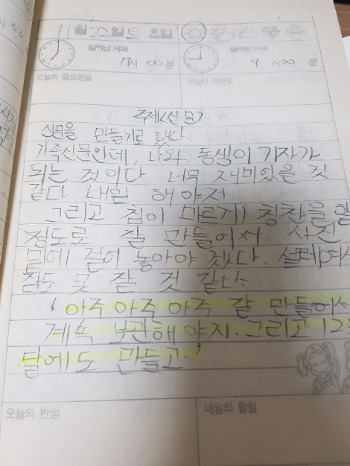 11월 22일 토 요일
일어난 시각
7시 00분
잠자는 시각
9시 00분
오늘의 중요한일
오늘의 착한일
주제: 신문
신문을 만들기로 했다.
가족신문인데, 나와 동생이 기자가
되는 것이다. 너무 재미있을 것
같다. 내일 해야지
그리고 침이 마르게 칭찬을 할
정도로 잘 만들어서 사진
같이 놓아야 겠다. 설레여서
잠도 못 잘 것 같다.
'아주 아주 아주 잘 만들어서
계속 보관해야지. 그리고 12
월에도 만들고'
오늘의 반성
내일의 할일